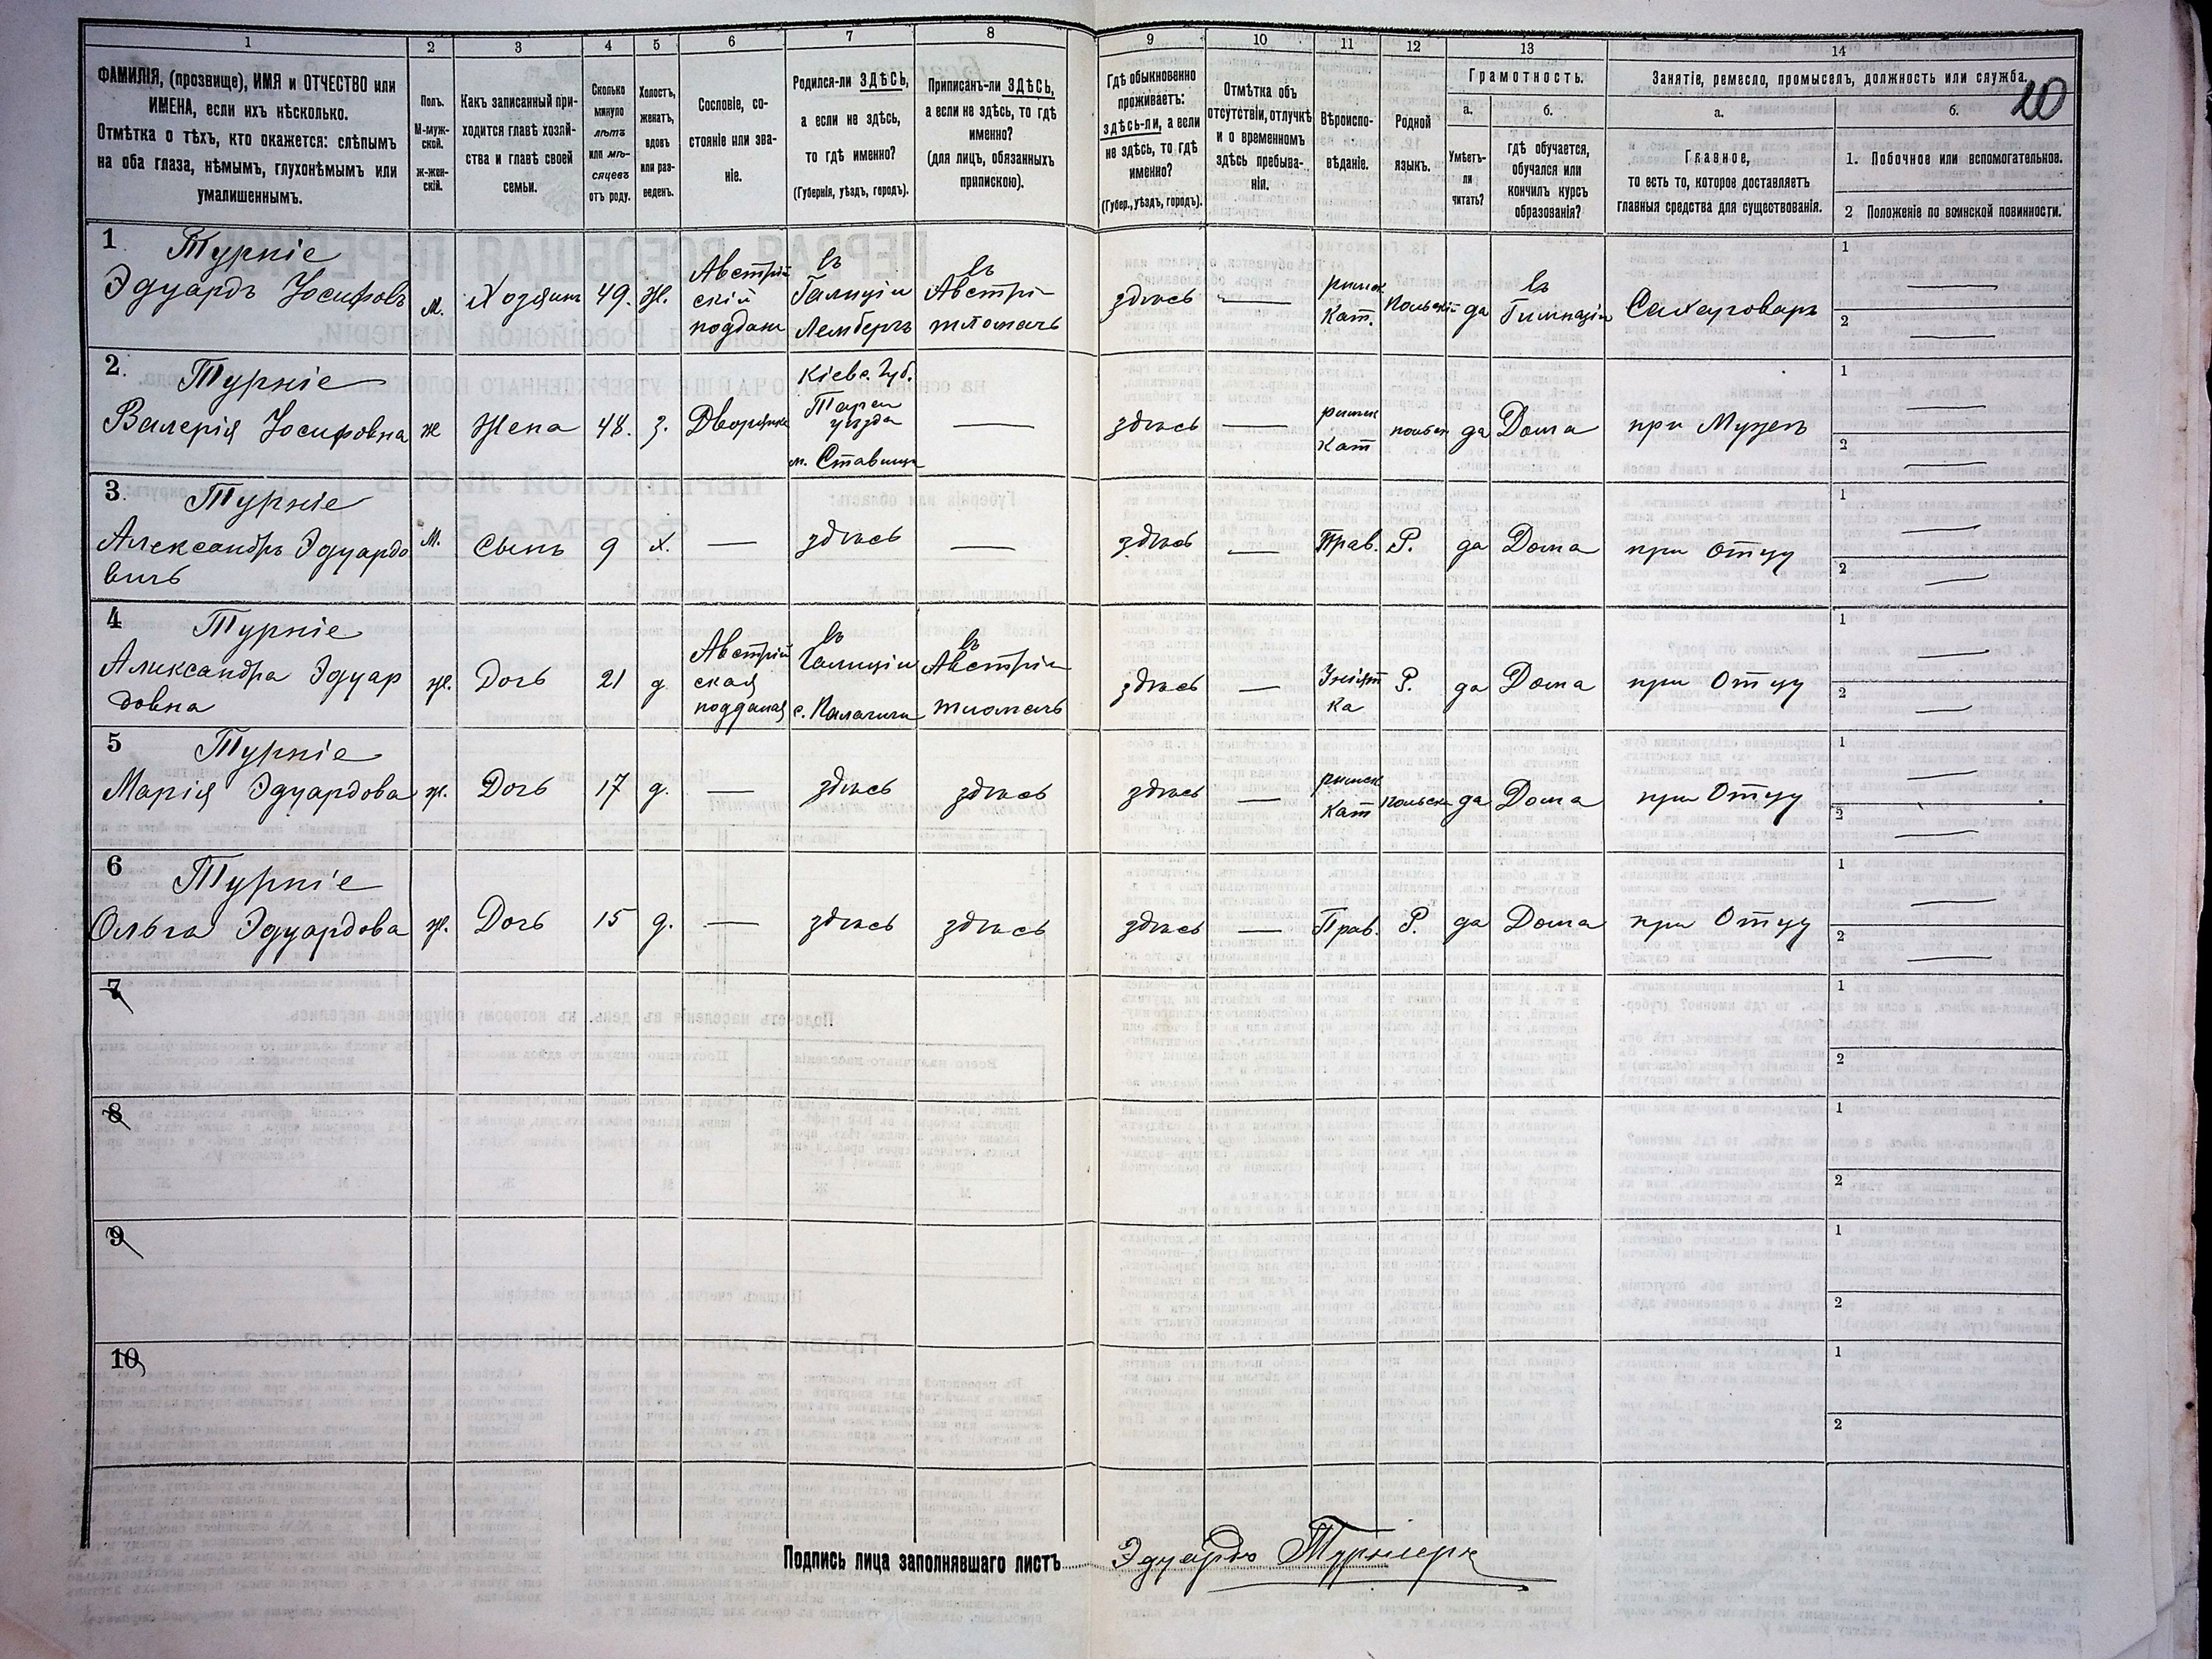 1
2
3
4
5
6
7
8
9
10
11
12
13
14
20
ФАМИЛІЯ, (прозвище), ИМЯ и ОТЧЕСТВО или
ИМЕНА, если ихъ нѣсколько.
Отмѣтка о тѣхъ, кто окажется: слѣпымъ
на оба глаза, нѣмымъ, глухонѣмымъ или
умалишеннымъ.
Полъ.
М-муж-
ской.
ж-жен-
скій.
Какъ записанный при-
ходится главѣ хозяй-
ства и главѣ своей
семьи.
Сколько
минуло
лѣтъ
или мѣ-
сяцевъ
отъ роду.
Холостъ,
женатъ,
вдовъ
или раз-
веденъ.
Сословіе, со-
стояніе или зва-
ніе.
Родился-ли ЗДѢСЬ,
а если не здѣсь,
то гдѣ именно?
(Губернія, уѣздъ, городъ).
Приписанъ-ли ЗДѢСЬ,
а если не здѣсь, то гдѣ
именно?
(для лицъ, обязанныхъ
припискою).
Гдѣ обыкновенно
проживаетъ:
здѣсь-ли, а если
не здѣсь, то гдѣ
именно?
(Губер., уѣздъ, городъ).
Отмѣтка объ
отсутствіи, отлучкѣ
и о временномъ
здѣсь пребыва-
ніи.
Вѣроиспо-
вѣданіе.
Родной
языкъ.
Грамотность.
а.
Умѣетъ-
ли
читать?
б.
гдѣ обучается,
обучался или
кончилъ курсъ
образованія?
Занятіе, ремесло, промыселъ, должность или служба.
а.
Главное,
то есть то, которое доставляетъ
главныя средства для существованія.
б.
1. Побочное или вспомогательное.
2 Положеніе по воинской повинности.
1
Турніе
Эдуардъ Іосифовъ
М.
Хозяинъ
49.
Ж.
Австрій
скій
поддан
въ
Галиціи
Лембергъ
въ
Австрі
тломачъ
здѣсь
—
римск
Кат.
Польскій
да
въ
Гимназіи
Сахароваръ
1 —
2 —
2.
Турніе
Валерія Іосифовна
ж
Жена
48.
з.
Дворянка
Кіевс. Губ.
Таращ
уѣзда
м. Ставища
—
здѣсь
—
римск
Кат
польск
да
Дома
при Мужѣ
1 —
2 —
3.
Турніе
Александръ Эдуардо
вичъ
М.
Сынъ
9
Х.
—
здѣсь
—
здѣсь
—
Прав.
Р.
да
Дома
при Отцу
1 —
2 —
4
Турніе
Александра Эдуар
довна
ж.
Дочь
21
д
Австрій
ская
подданая
въ
Галиціи
въ
Австріи
тломачъ
здѣсь
—
Уніят
ка
Р.
да
Дома
при Отцу
1 —
2 —
5
Турніе
Марія Эдуардова
ж.
Дочь
17
д.
—
здѣсь
здѣсь
здѣсь
—
римск
Кат
польски
да
Дома
при Отцу
1 —
2 —
6
Турніе
Ольга Эдуардова
ж.
Дочь
15
д.
—
здѣсь
здѣсь
здѣсь
—
Прав.
Р.
да
Дома
при Отцу
1 —
2 —
7
1
2
8
1
2
9
1
2
10
1
2
Подпись лица заполнявшаго листъ
Эдуардъ